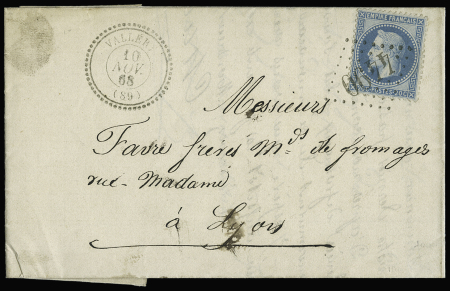 VALLERY
10
NOV.
68
(89)
EMPIRE FRANÇAIS
Messieurs
Favre frères M.ds de fromages
rue Madame
à Lyon